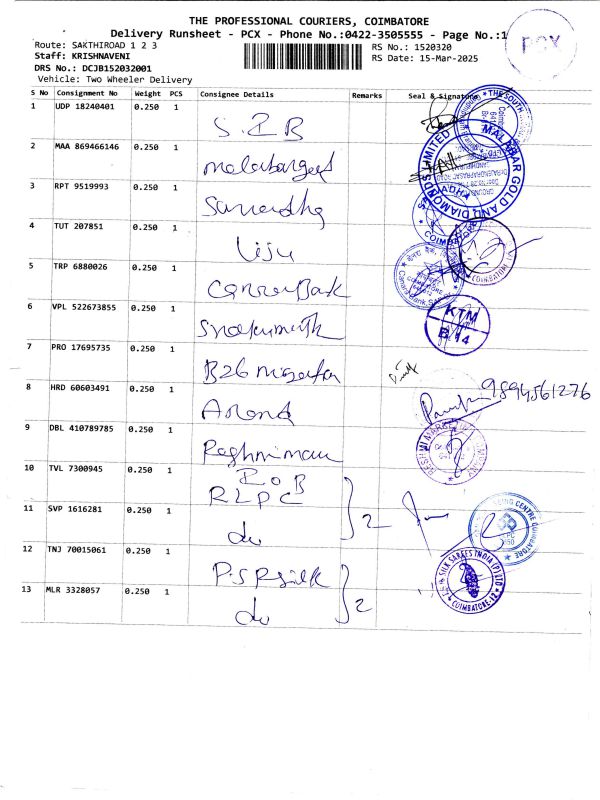 THE PROFESSIONAL COURIERS, COIMBATORE
Delivery Runsheet - PCX - Phone No.:0422-3505555 - Page No.:1
Route: SAKTHIROAD 1 2 3
RS No.: 1520320
Staff: KRISHNAVENI
RS Date: 15-Mar-2025
DRS No.: DCJB152032001
Vehicle: Two Wheeler Delivery
PCX
S No Consignment No Weight PCS Consignee Details Remarks Seal & Signature
1 UDP 18240401 0.250 1 S.I.B
2 MAA 869466146 0.250 1
3 RPT 9519993 0.250 1
4 TUT 207851 0.250 1 Liju
5 TRP 6880026 0.250 1 Canara Bank
6 VPL 522673855 0.250 1
7 PRO 17695735 0.250 1 B26
8 HRD 60603491 0.250 1 Anand 9894561276
9 DBL 410789785 0.250 1
10 TVL 7300945 0.250 1 BOB
RLPC
2
11 SVP 1616281 0.250 1 do
12 TNJ 70015061 0.250 1 P.S.R silk
2
13 MLR 3328057 0.250 1 do
THE SOUTH
MALABAR GOLD AND DIAMONDS LIMITED
COIMBATORE
KTM
B 14
SILK SAREES INDIA (P) LTD
COIMBATORE-12